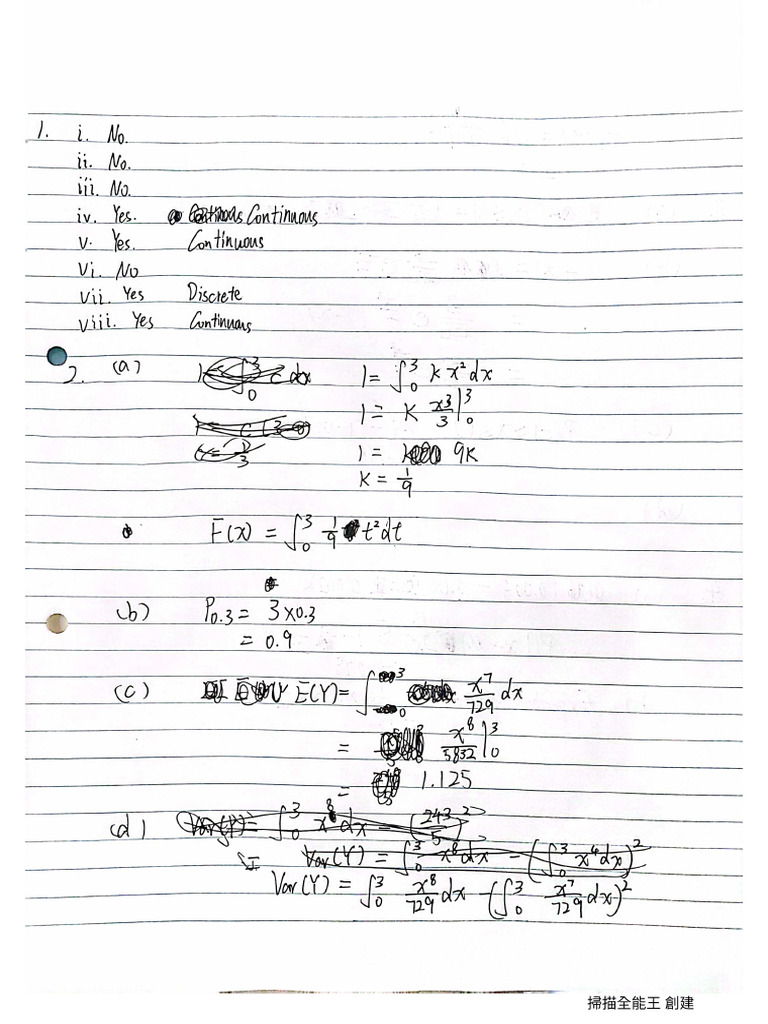 1. i. No.
ii. No.
iii. No.
iv. Yes. Continuous
v. Yes. Continuous
vi. No
vii. Yes Discrete
viii. Yes Continuous
2. (a) 1 = ∫₀³ k x² dx
1 = k x³/3 |₀³
1 = 9k
k = 1/9
F(x) = ∫₀³ 1/9 t² dt
(b) P₀.₃ = 3×0.3
= 0.9
(c) E(Y) = ∫₀³ x⁷/729 dx
= x⁸/5832 |₀³
= 1.125
(d) Var(Y) = ∫₀³ x⁸ dx - (243/5)²
Var(Y) = ∫₀³ x⁸ dx - (∫₀³ x⁴ dx)²
Var(Y) = ∫₀³ x⁸/729 dx - (∫₀³ x⁷/729 dx)²
掃描全能王 創建